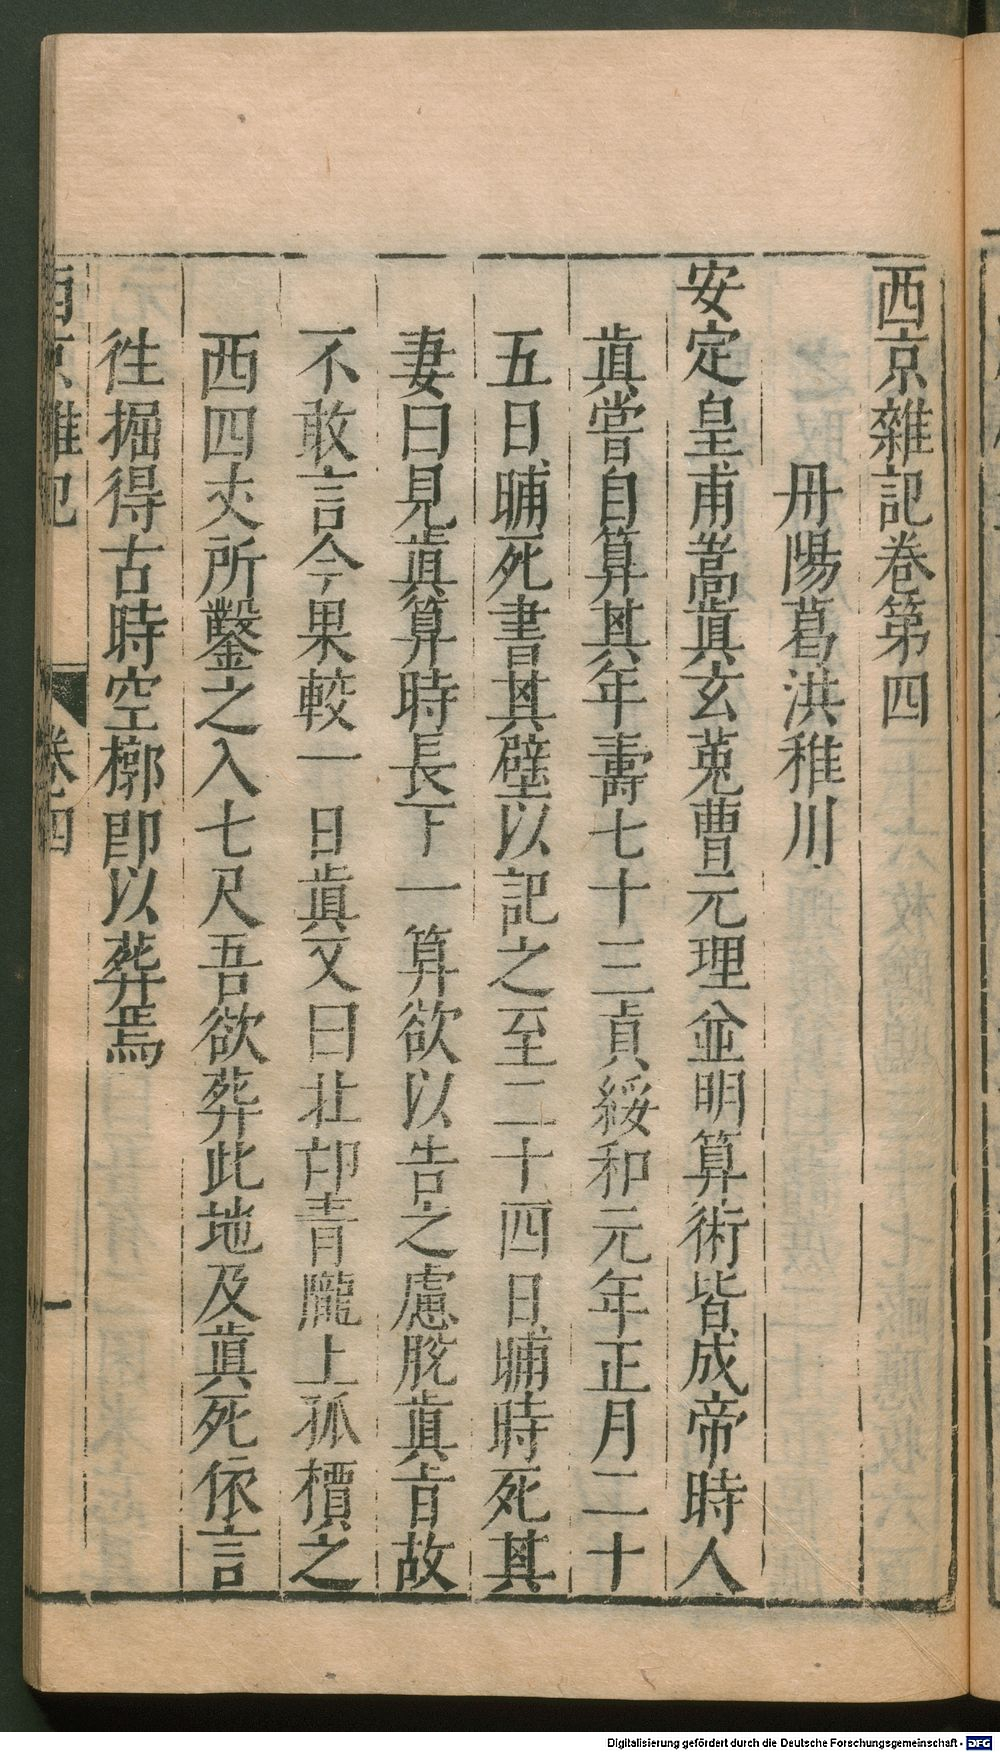 西京雜記卷第四
丹陽葛洪稚川
安定皇甫嵩真玄菟曹元理並明算術皆成帝時人
真嘗自算其年壽七十三貞綏和元年正月二十
五日晡死書其壁以記之至二十四日晡時死其
妻曰見真算時長下一算欲以告之慮脫真旨故
不敢言今果較一日真又曰北邙青隴上孤檟之
西四丈所鑿之入七尺吾欲葬此地及真死依言
徃掘得古時空槨即以葬焉
西京雜記
卷四
一
Digitalisierung gefördert durch die Deutsche Forschungsgemeinschaft - DFG